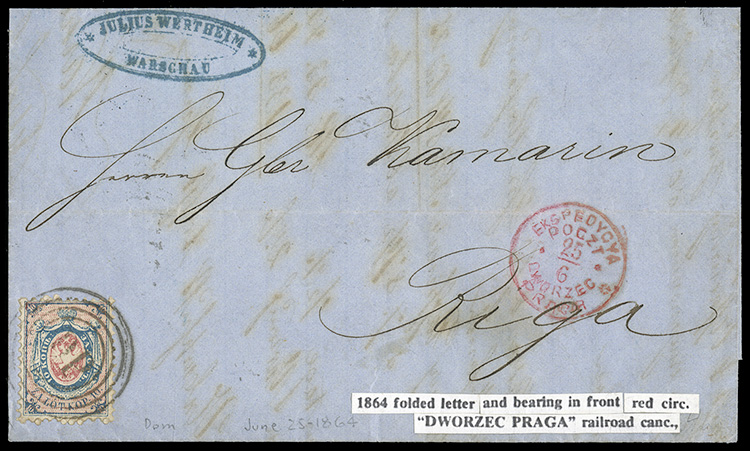 * JULIUS WERTHEIM *
WARSCHAU
Herren Gbr Kamarin
Riga
EKSPEDYCYA
POCZT
25
6
DWORZEC
PRAGA
ZA ŁÓT KOP. 10
1864 folded letter and bearing in front red circ.
"DWORZEC PRAGA" railroad canc.,
Dom June 25-1864